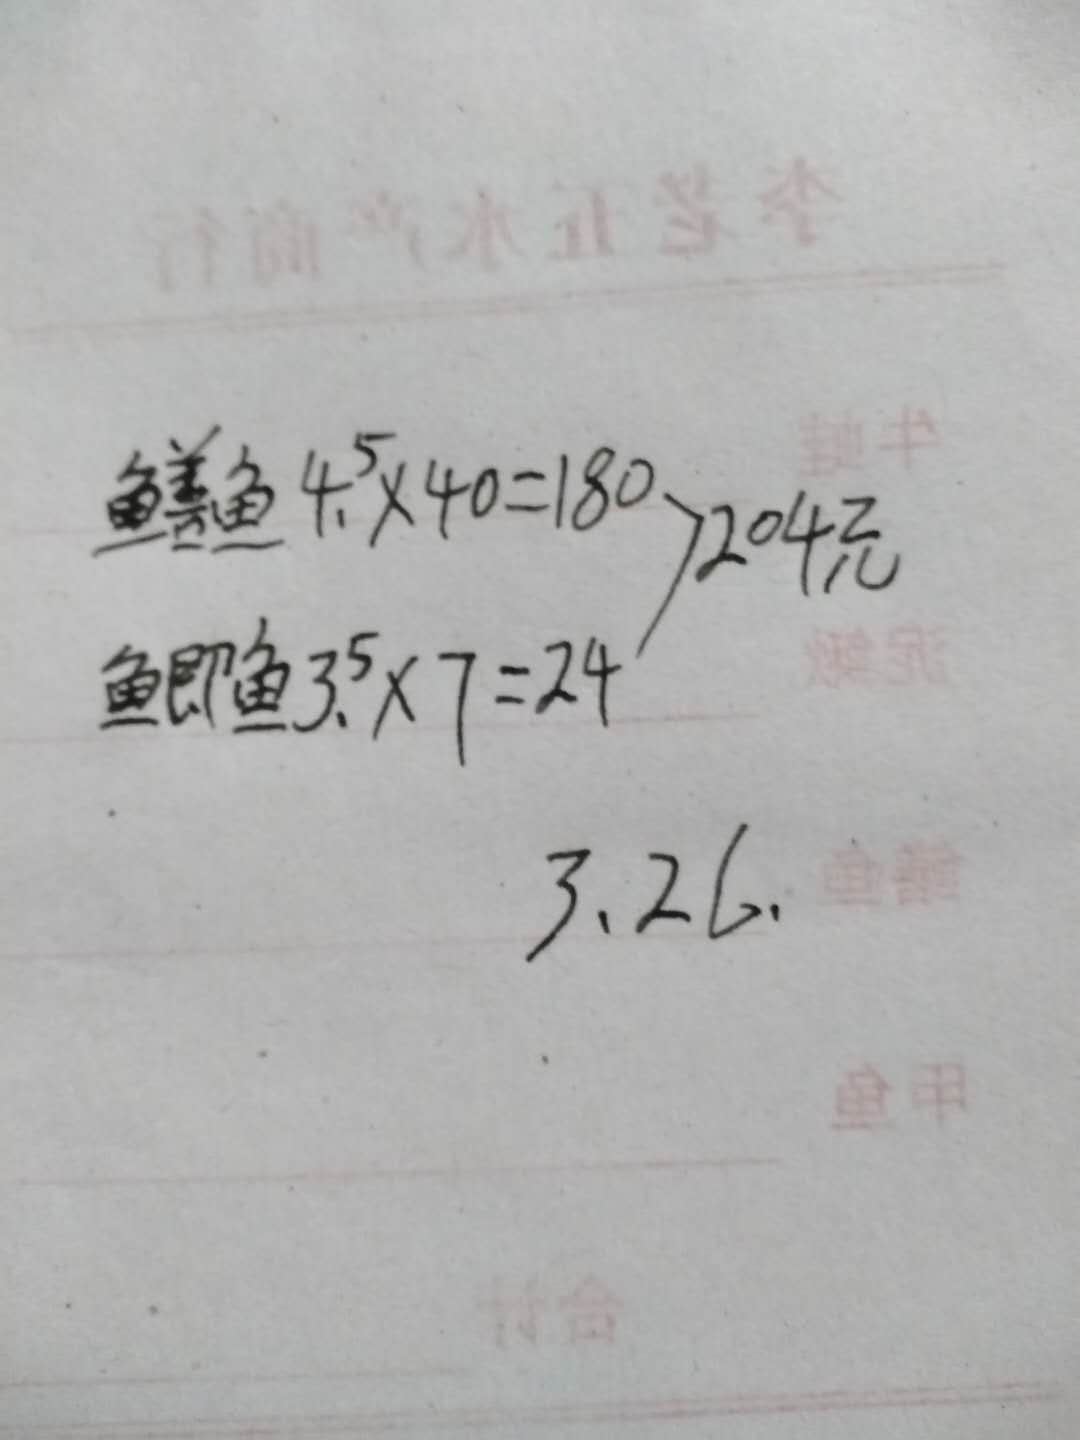 李老五水产商行
牛蛙
鳝鱼 4.5×40=180
204元
泥鳅
鲫鱼 3.5×7=24
鳝鱼
3.26.
甲鱼
合计